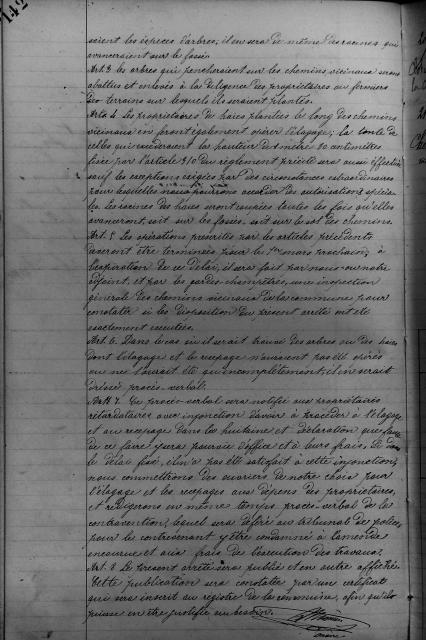 142
soient les espèces d'arbres; il en sera de même des racines qui
avanceraient sur le fossé.
Art. 3. les arbres qui pencheraient sur les chemins vicinaux seront
abattus et enlevés à la diligence des propriétaires ou fermiers
des terrains sur lesquels ils seraient plantés.
Art. 4. Les propriétaires de haies plantées le long des chemins
vicinaux en front également opérer l'élagage; la tonte de
celles qui excéderaient la hauteur d'1 mètre 50 centimètres
fixée par l'article 310 du règlement précité sera aussi effectuée
sauf les exceptions exigées par des circonstances extraordinaires
pour lesquelles nous pourrons accorder des autorisations spéciales
Les racines des haies seront coupées toutes les fois qu'elles
avanceront, soit sur les fossés, soit sur le sol des chemins.
Art. 5. Les opérations prescrites par les articles précédents
devront être terminées pour le 1er mars prochain; à
l'expiration de ce délai, il sera fait par nous ou notre
adjoint, et par les gardes-champêtres, une inspection
générale des chemins vicinaux de la commune pour
constater si les disposition du présent arrêté ont été
exactement exécutées.
Art. 6. Dans le cas où il serait trouvé des arbres ou des haies
dont l'élagage et le recepage n'auraient pas été opérés
ou ne l'auraient été qu'incomplètement, il en serait
dressé procès-verbal.
Art. 7. Ce procès-verbal sera notifié aux propriétaires
retardataires avec injonction d'avoir à procéder à l'élagage
et au recepage dans la huitaine et déclaration que faute
de ce faire y sera pourvu d'office et à leurs frais. Si dans
le délai fixé, il n'a pas été satisfait à cette injonction,
nous commettrons des ouvriers de notre choix pour
l'élagage et les recepages aux dépens des propriétaires,
et rédigerons en même temps procès-verbal de la
contravention, lequel sera déféré au tribunal de police,
pour le contrevenant y être condamné à l'amende
encourue et aux frais de l'exécution des travaux.
Art. 8. Le présent arrêté sera publié et en outre affiché.
Cette publication sera constatée par un certificat
qui sera inscrit au registre de la commune, afin qu'il
puisse en être justifié au besoin.